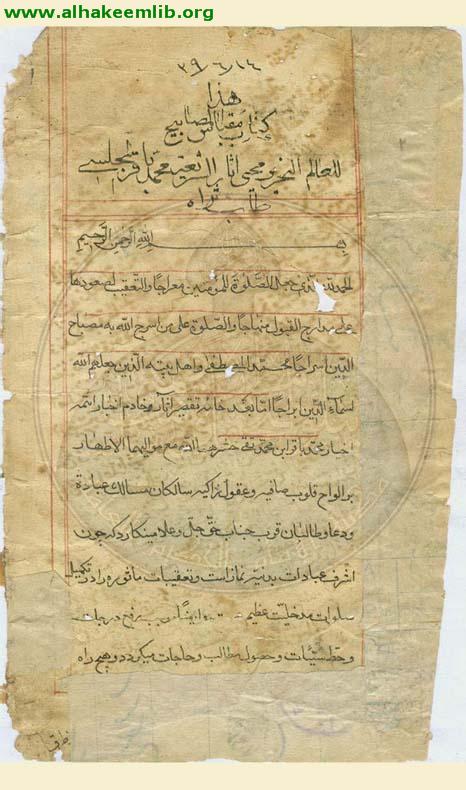 www.alhakeemlib.org
٣٩/٦/١٤
هذا
كتاب مقباس المصابيح
للعالم النحرير محيي آثار الاثني عشرية محمد باقر المجلسي
طاب ثراه
بسم الله الرحمن الرحيم
الحمد لله الذي جعل الصلوة للمؤمنين معراجا والتعقيب لصعودها
على مدارج القبول منهاجا والصلوة على من اسرج الله به مصباح
الدين اسراجا محمد المصطفى واهل بيته الذين جعلهم الله
لسماء الدين ابراجا اما بعد خاثر تقصير آثار وخادم اخبار ائمه
اخيار محمد باقر ابن محمد تقي حشرهما الله مع مواليهما الاطهار
بر الواح قلوب صافيه وعقول زاكيه سالكان مسالك عبادة
ودعا وطالبان قرب جناب حق جل وعلا مينكارد كه چون
اشرف عبادات بدنيه نماز است وتعقيبات ماثوره را در تكميل
صلوات مدخليت عظيم رفع درجات
وحط سيئات وحصول مطالب وحاجات ميكردد وهيچ راه